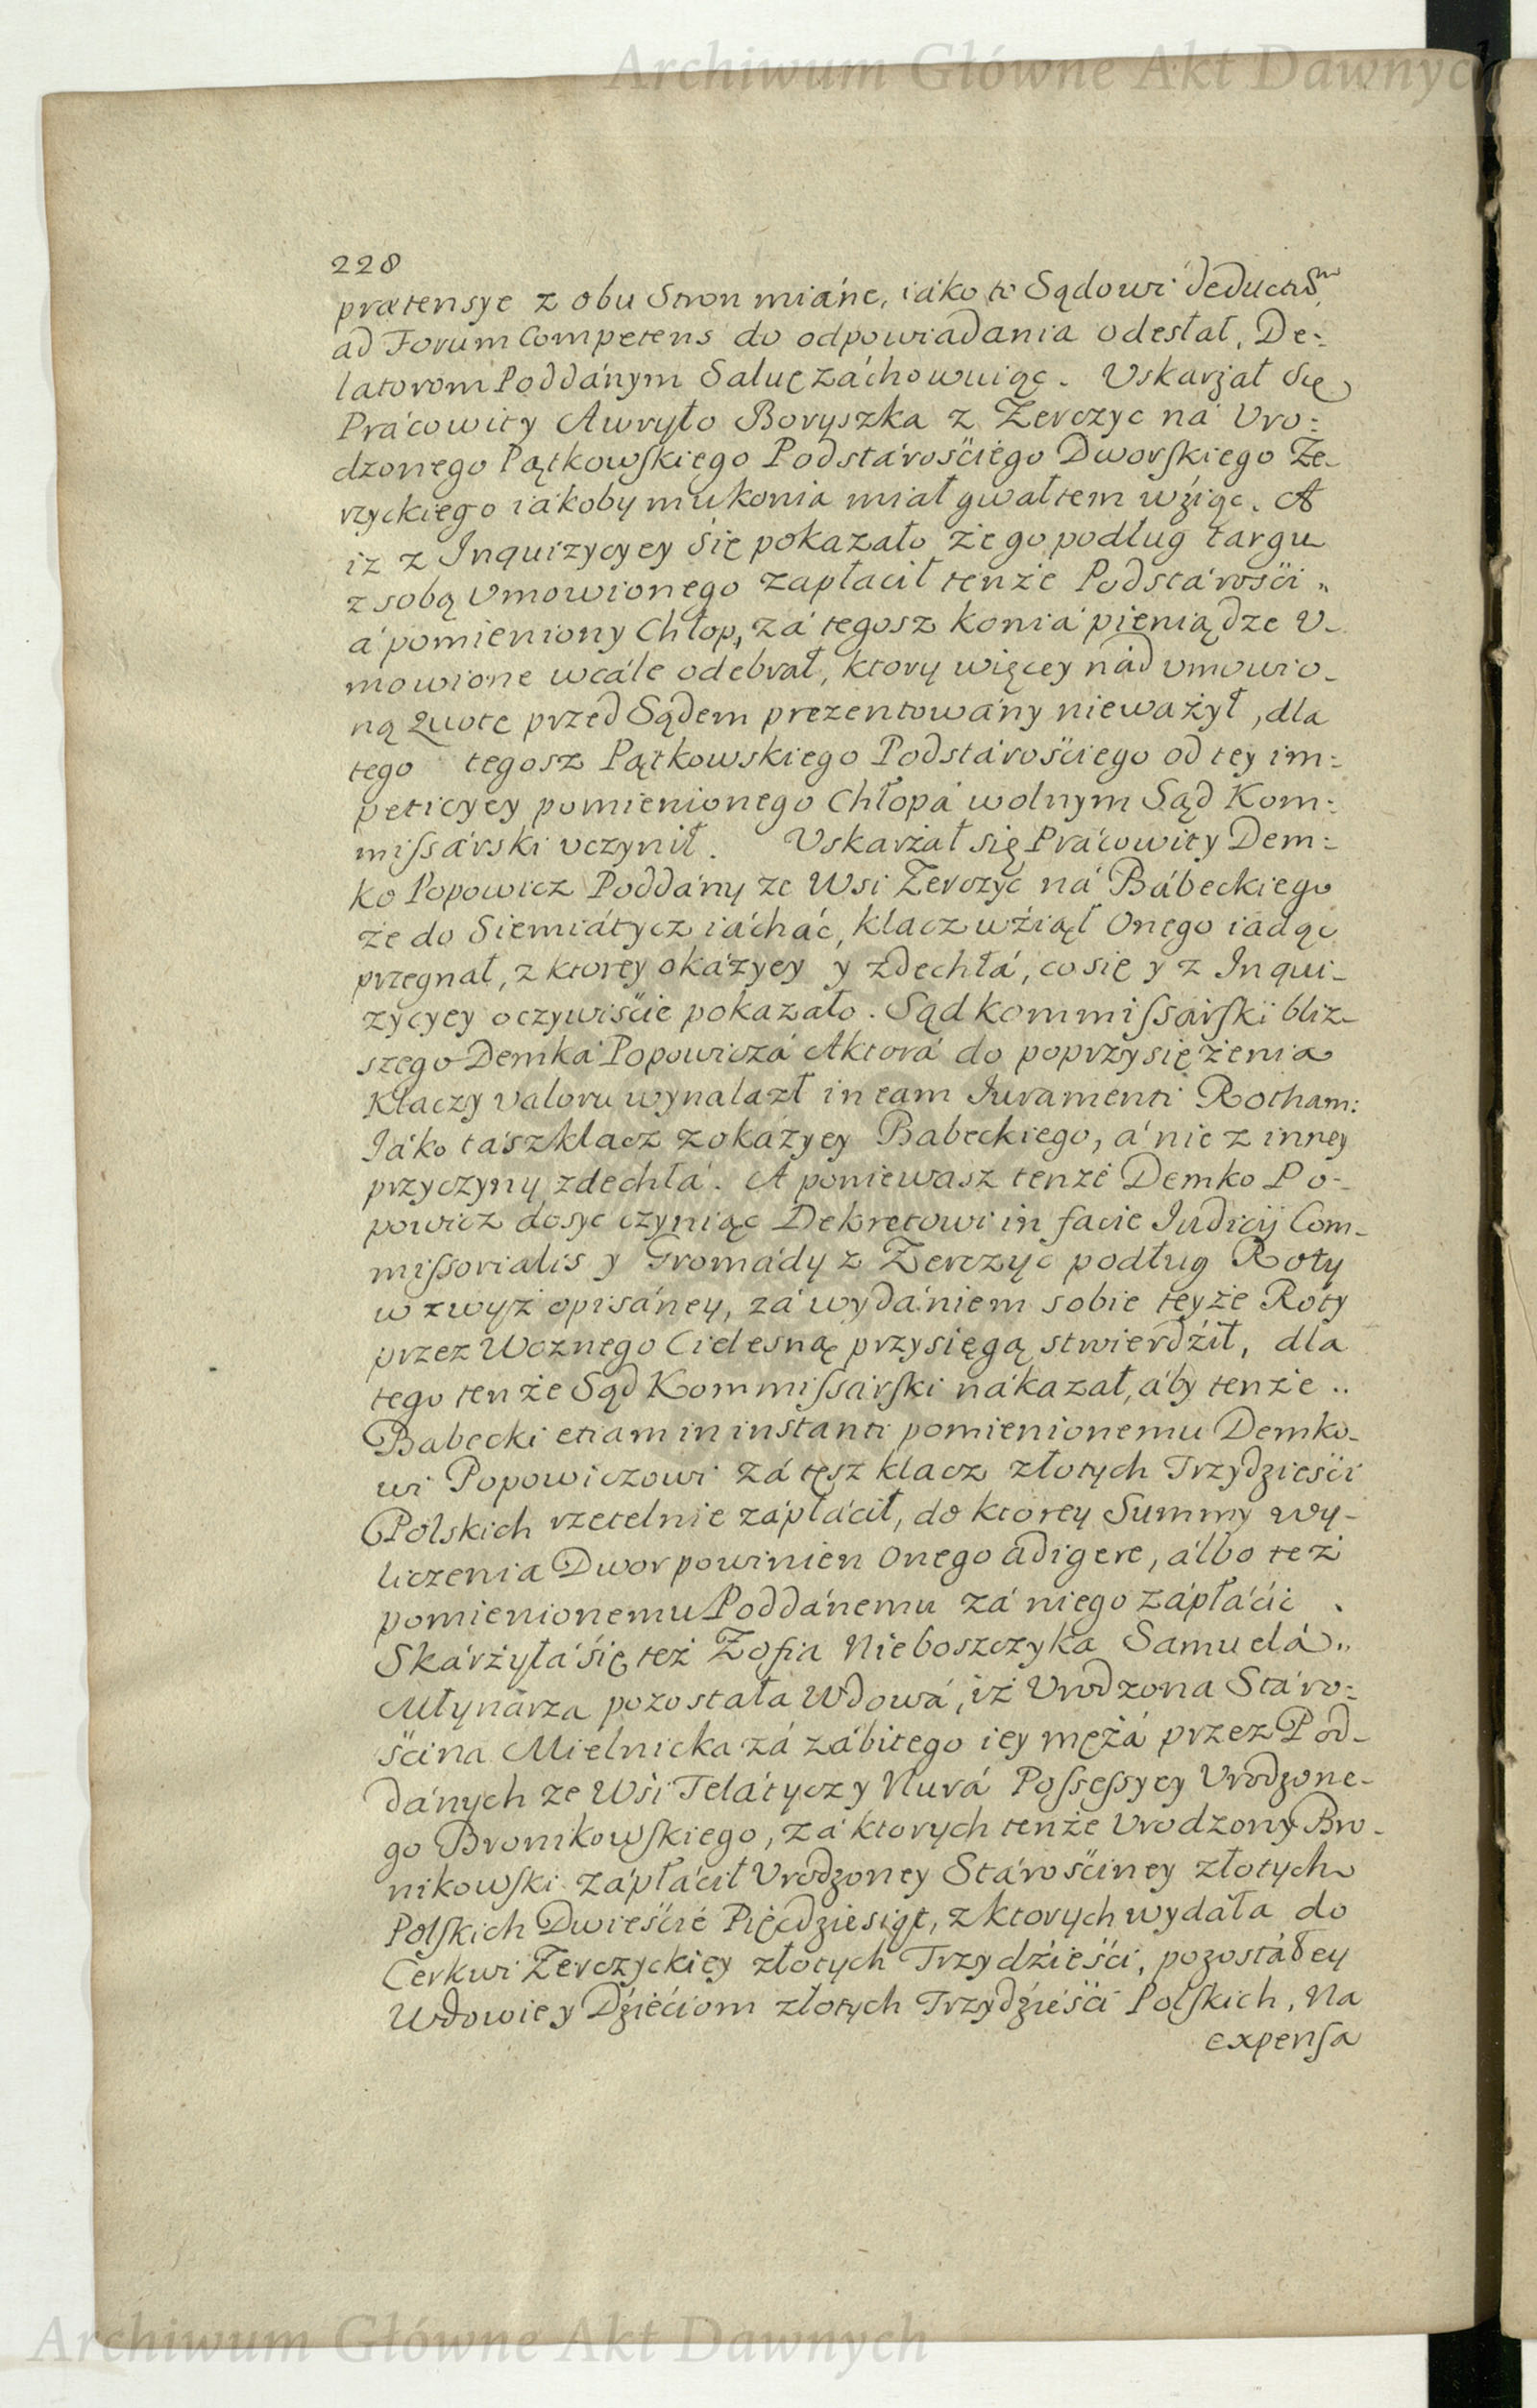 Archiwum Główne Akt Dawnych
228
prætensye z obu Stron miáne, iáko to Sądowi deductũ
ad Forum Competens do odpowiadania odesłał, De-:
latorom Poddánym Saluę záchowuiąc. Uskarżał Się
Prácowity Awryło Boryszka z Zerczyc ná Uro:
dzonego Pątkowskiego Podstárościego Dworskiego Ze-
rzyckiego iakoby mu konia miał gwałtem wźiąc. A
iz z Inquizycyey Się pokazało że go podług targu
z sobą Umowionego zapłacił tenże Podstárości „
á pomieniony Chłop, zá tegosz koniá pieniądze U-
mowione wcále odebrał, ktory więcey nád umowio-
ną Quotę przed Sądem prezentowány nieważył, dla
tego tegosz Pątkowskiego Podstárościego od tey im-:
peticyey pomienionego Chłopá wolnym Sąd Kom-:
missárski uczynił. Uskarżał się Prácowity Dem-:
ko Popowicz Poddány ze Wsi Zerczyc ná Bábeckiego
że do Siemiátycz iácháć, klacz wźiął Onego iadąc
przegnał, z ktorey okázyey y zdechłá, co się y z Inqui-
zycyey oczywiście pokazało. Sąd kommissárski bliz-
szego Demká Popowiczá Aktorá do poprzysiężenia
Klaczy valoru wynalazł in eam Iuramenti Rotham:
Iáko tász klacz z okázyey Babeckiego, á nie z inney
przyczyny zdechłá. A poniewasz tenże Demko Po-
powicz dosyc czyniąc Dekretowi in facie Iudicij Com-
missorialis y Gromády z Zerczyc podług Roty
wzwyż opisáney, zá wydániem sobie teyże Roty
przez Woznego Cielesną przysięgą stwierdźił, dla
tego tenże Sąd Kommissárski nákazał, áby tenże ..
Babecki etiam in instanti pomienionemu Demko-
wi Popowiczowi zá tęsz klacz złotych Trzydzieści
Polskich rzetelnie zápłácił, do ktorey Summy wy-
liczenia Dwor powinien Onego adigere, álbo też
pomienionemu Poddánemu zá niego zápłácić .
Skárżyłá śię też Zofia Nieboszczyka Samuelá „
Młynárza pozostała Wdowá, iż Urodzona Stáro-:
ścina Mielnicka zá zábitego iey mężá przez Pod-
dánych ze Wśi Telátycz y Nurá Possessyey Urodzone-
go Bronikowskiego, zá ktorych tenże Urodzony Bro-
nikowski zápłácił Urodzoney Stárościney złotych
Polskich Dwieście Pięcdziesiąt, z ktorych wydáła do
Cerkwi Zerczyckiey złotych Trzydźieści, pozostáłey
Wdowie y Dźieciom złotych Trzydźieści Polskich, Na
expensa
Archiwum Główne Akt Dawnych